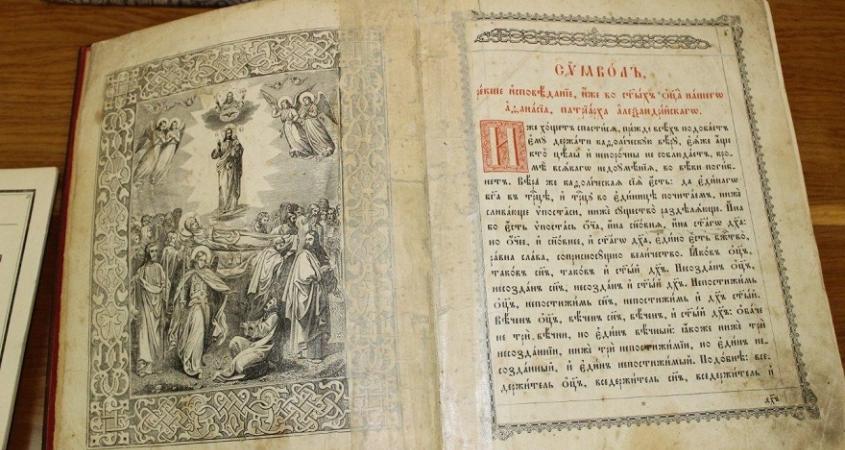 СѶМВО́ЛЪ,
ре́кше и҆сповѣ́данїе, и҆́же во ст҃ы́хъ ѻ҆ц҃а̀ на́шегѡ
а҆ѳана́сїа, патрїа́рха а҆леѯандрі́йскагѡ.
И҆́же хо́щетъ спасти́сѧ, пре́жде всѣ́хъ подоба́етъ
є҆мꙋ̀ держа́ти каѳолі́ческꙋю вѣ́рꙋ, є҆ѧ́же а҆́ще
кто̀ цѣ́лы и҆ непоро́чны не соблюда́етъ, кро-
мѣ̀ всѧ́кагѡ недоꙋмѣ́нїѧ, во вѣ́ки поги́б-
нетъ. Вѣ́ра же каѳолі́ческаѧ сїѧ̀ є҆́сть: да є҆ди́наго
бг҃а въ трⷪ҇цѣ, и҆ трⷪ҇цꙋ во є҆ди́ницѣ почита́емъ, нижѐ
слива́юще ѵ҆поста́си, нижѐ сꙋщество̀ раздѣлѧ́юще. И҆́на
бо є҆́сть ѵ҆поста́сь ѻ҆́ч҃а, и҆́на сн҃о́внѧ, и҆́на ст҃а́гѡ дх҃а:
но ѻ҆́ч҃ее, и҆ сн҃о́внее, и҆ ст҃а́гѡ дх҃а, є҆ди́но є҆́сть бж҃ество̀,
ра́вна сла́ва, соприсносꙋ́щно вели́чество. Ꙗ҆ко́въ ѻ҆ц҃ъ,
тако́въ сн҃ъ, тако́въ и҆ ст҃ы́й дх҃ъ. Несозда́нъ ѻ҆ц҃ъ,
несозда́нъ сн҃ъ, несозда́нъ и҆ ст҃ы́й дх҃ъ. Непостижи́мь
ѻ҆ц҃ъ, непостижи́мь сн҃ъ, непостижи́мь и҆ дх҃ъ ст҃ы́й.
Вѣ́ченъ ѻ҆ц҃ъ, вѣ́ченъ сн҃ъ, вѣ́ченъ, и҆ ст҃ы́й дх҃ъ: ѻ҆ба́че
не трѝ вѣ́чни, но є҆ди́нъ вѣ́чный: ꙗ҆́коже нижѐ трѝ
несозда́ннїи, нижѐ трѝ непостижи́мїи, но є҆ди́нъ не-
созда́нный, и҆ є҆ди́нъ непостижи́мый. Подо́бнѣ: все-
держи́тель ѻ҆ц҃ъ, вседержи́тель сн҃ъ, вседержи́тель и҆
дх҃ъ